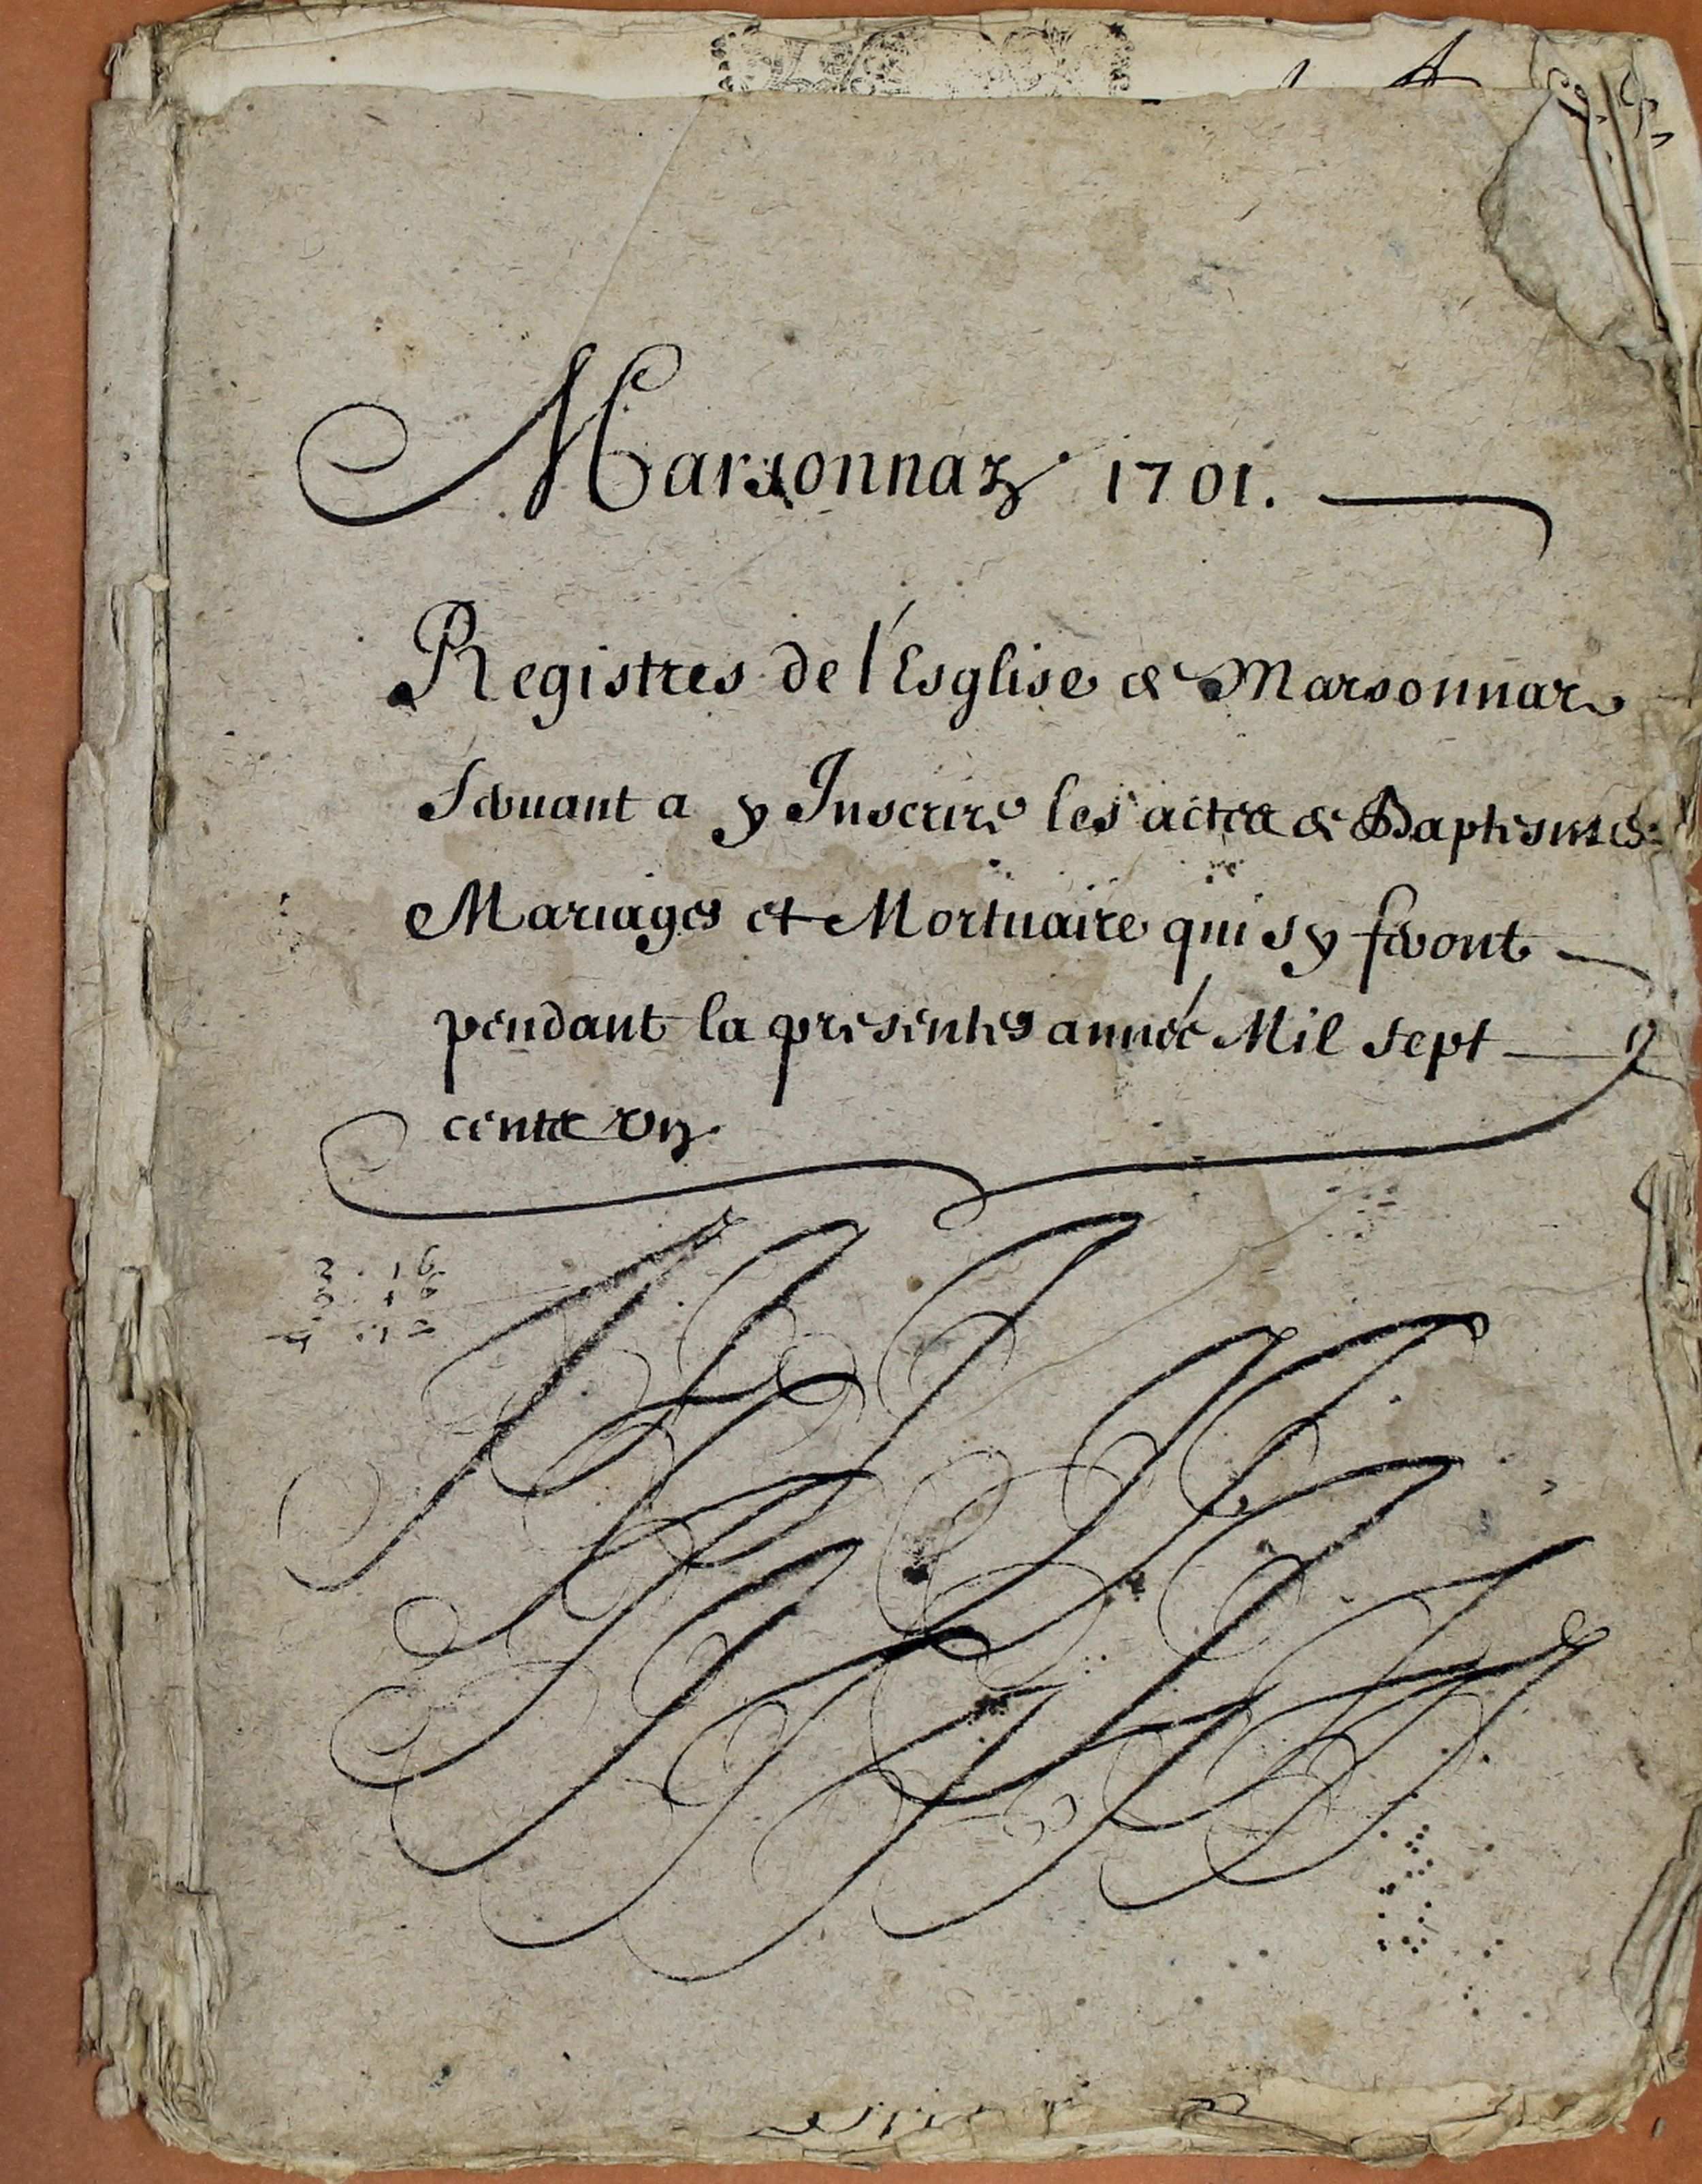 Marsonnaz 1701.
Registres de l'Esglise de Marsonnaz
servant a y Inscrire les actes de Baptesmes
Mariages et Mortuaire qui sy feront
pendant la presentes année Mil sept
cents vn
3 . 16